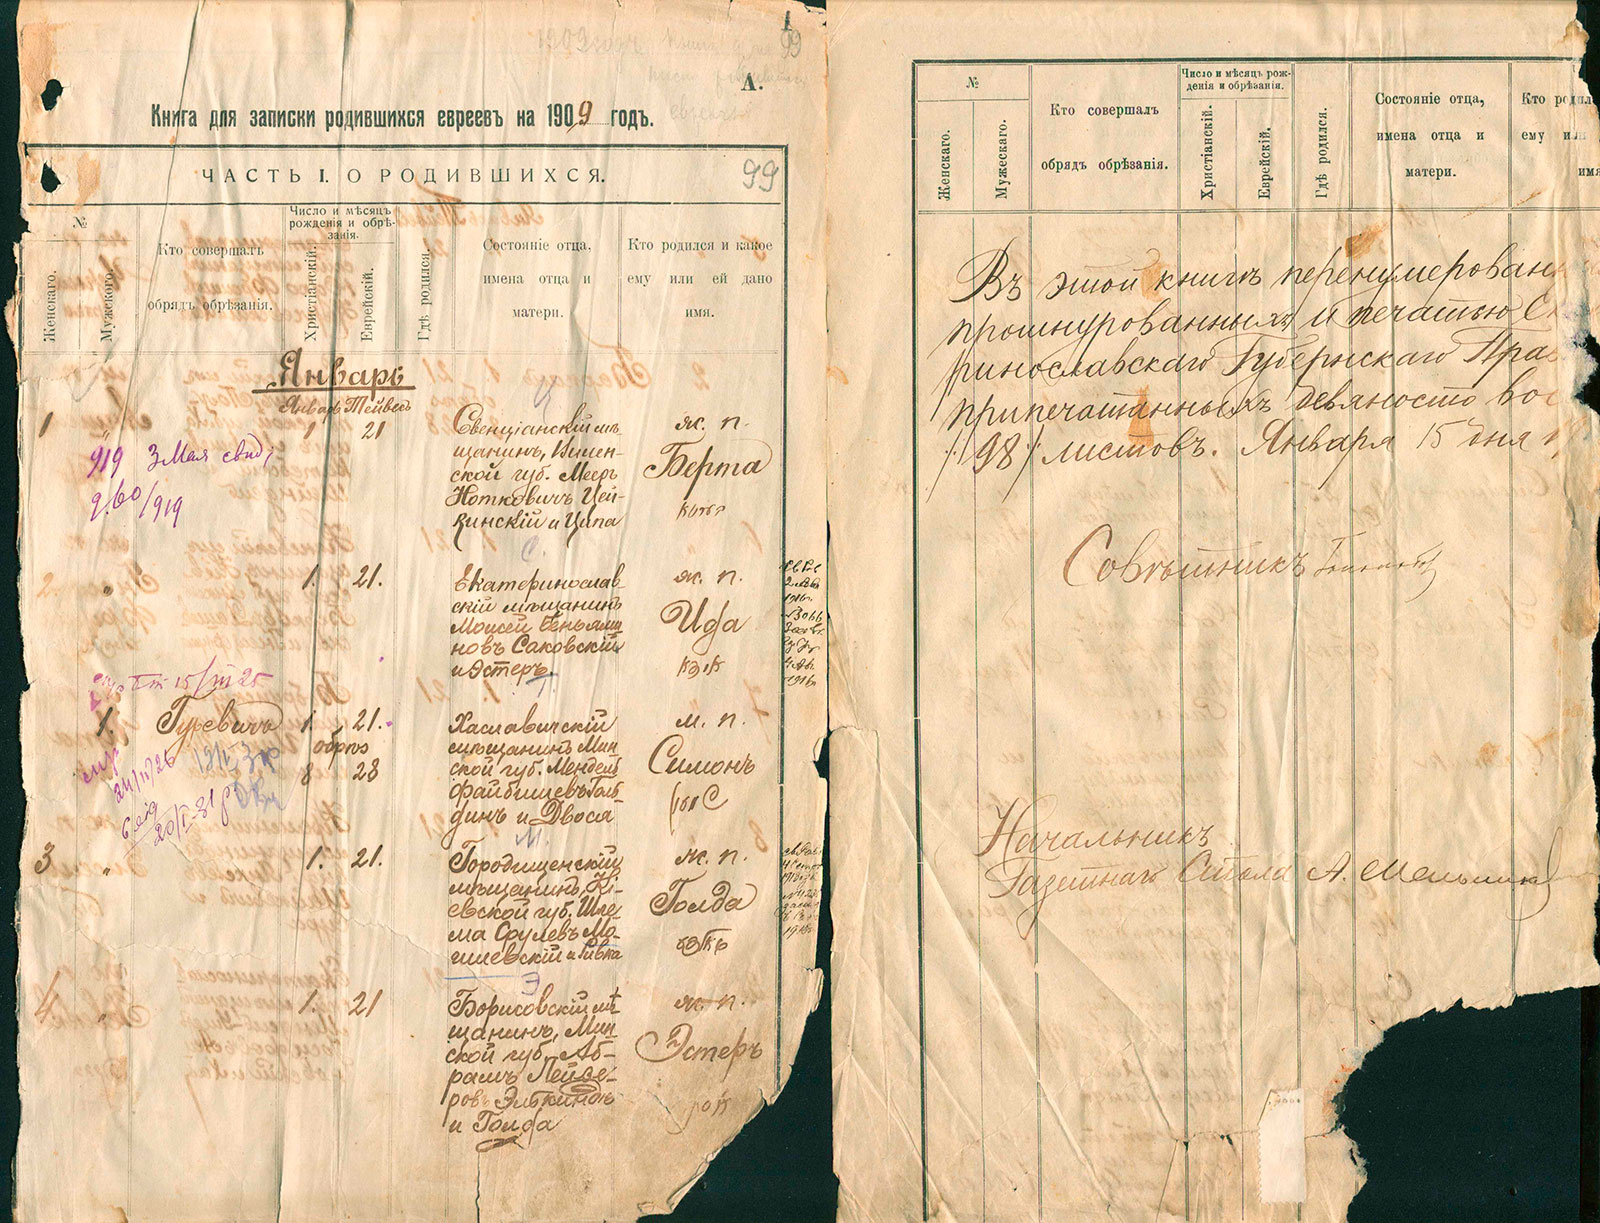 1
99
А.
Книга для записки родившихся евреевъ на 1909 годъ.
ЧАСТЬ I. О РОДИВШИХСЯ.
99
№
Женскаго.
Мужского.
Кто совершалъ
обрядъ обрѣзанія.
Число и мѣсяцъ
рожденія и обрѣ-
занія.
Христіанскій.
Еврейскій.
Гдѣ родился.
Состояніе отца,
имена отца и
матери.
Кто родился и какое
ему или ей дано
имя.
Январь
Январь Тейвесъ
1 " 1 21
Свенціанскій мѣ-
щанинъ, Вилен-
ской губ. Мееръ
Нотковичъ Цей-
кинскій и Ципа
ж. п.
Берта
919 3 Мая свид.
2 " 1. 21.
Екатеринослав
скій мѣщанинъ
Моисей Беньями
новъ Саковскій
и Эстеръ.
ж. п.
Ида
15/III 25
1. Гуревичъ 1. 21.
обрѣз
8 28
Хаславичскій
мѣщанинъ Мин
ской губ. Мендель
Файбишевъ Голь-
динъ и Двося
м. п.
Симонъ
3 " 1. 21.
Городищенскій
мѣщанинъ, Кі-
евской губ. Шле-
ма Срулевъ Мо-
гилевскій и Ривка
ж. п.
Голда
4 " 1. 21
Борисовскій мѣ-
щанинъ, Мин-
ской губ. Аб-
рамъ Лейзе-
ровъ Элькиндъ
и Голда
ж. п.
Эстеръ
№
Женскаго.
Мужескаго.
Кто совершалъ
обрядъ обрѣзанія.
Число и мѣсяцъ рож-
денія и обрѣзанія.
Христіанскій.
Еврейскій.
Гдѣ родился.
Состояніе отца,
имена отца и
матери.
Кто родил
ему или
имя
Въ этой книгѣ перенумерован
прошнурованныхъ и печатью Ек
ринославскаго Губернскаго Прав
припечатанныхъ девяносто вос
/98/ листовъ. Января 15 дня
Совѣтникъ
Начальникъ
Газетнаго Стола А. Мельник